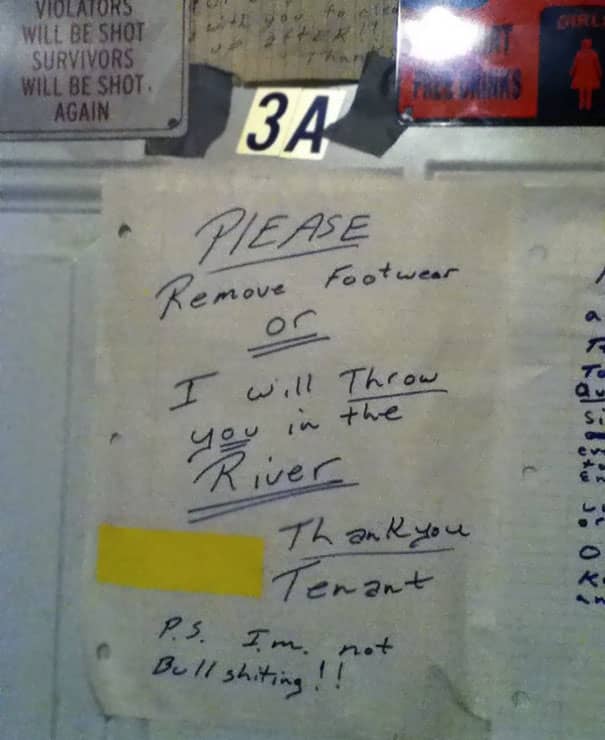 VIOLATORS
WILL BE SHOT
SURVIVORS
WILL BE SHOT
AGAIN
with you to
up after
Thank
GIRL
FREE DRINKS
3A
PlEASE
Remove Footwear
or
I will Throw
you in the
River
Thankyou
Tenant
P.S. I.m. not
Bullshiting!!